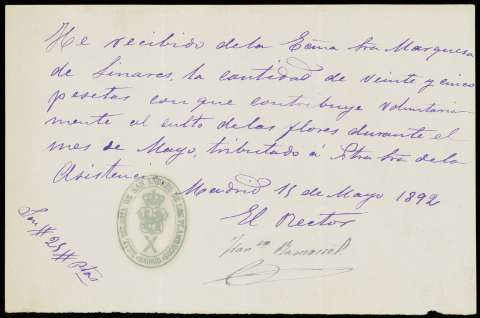 He recibido de la Ecma Sra Marquesa
de Linares, la cantidad de veinte y cinco
pesetas con que contribuye voluntaria-
mente al culto de las flores durante el
mes de Mayo, tributado á Ntra Sra de la
Asistencia
Madrid 15 de Mayo 1892
El Rector
Son # 25 # Ptas